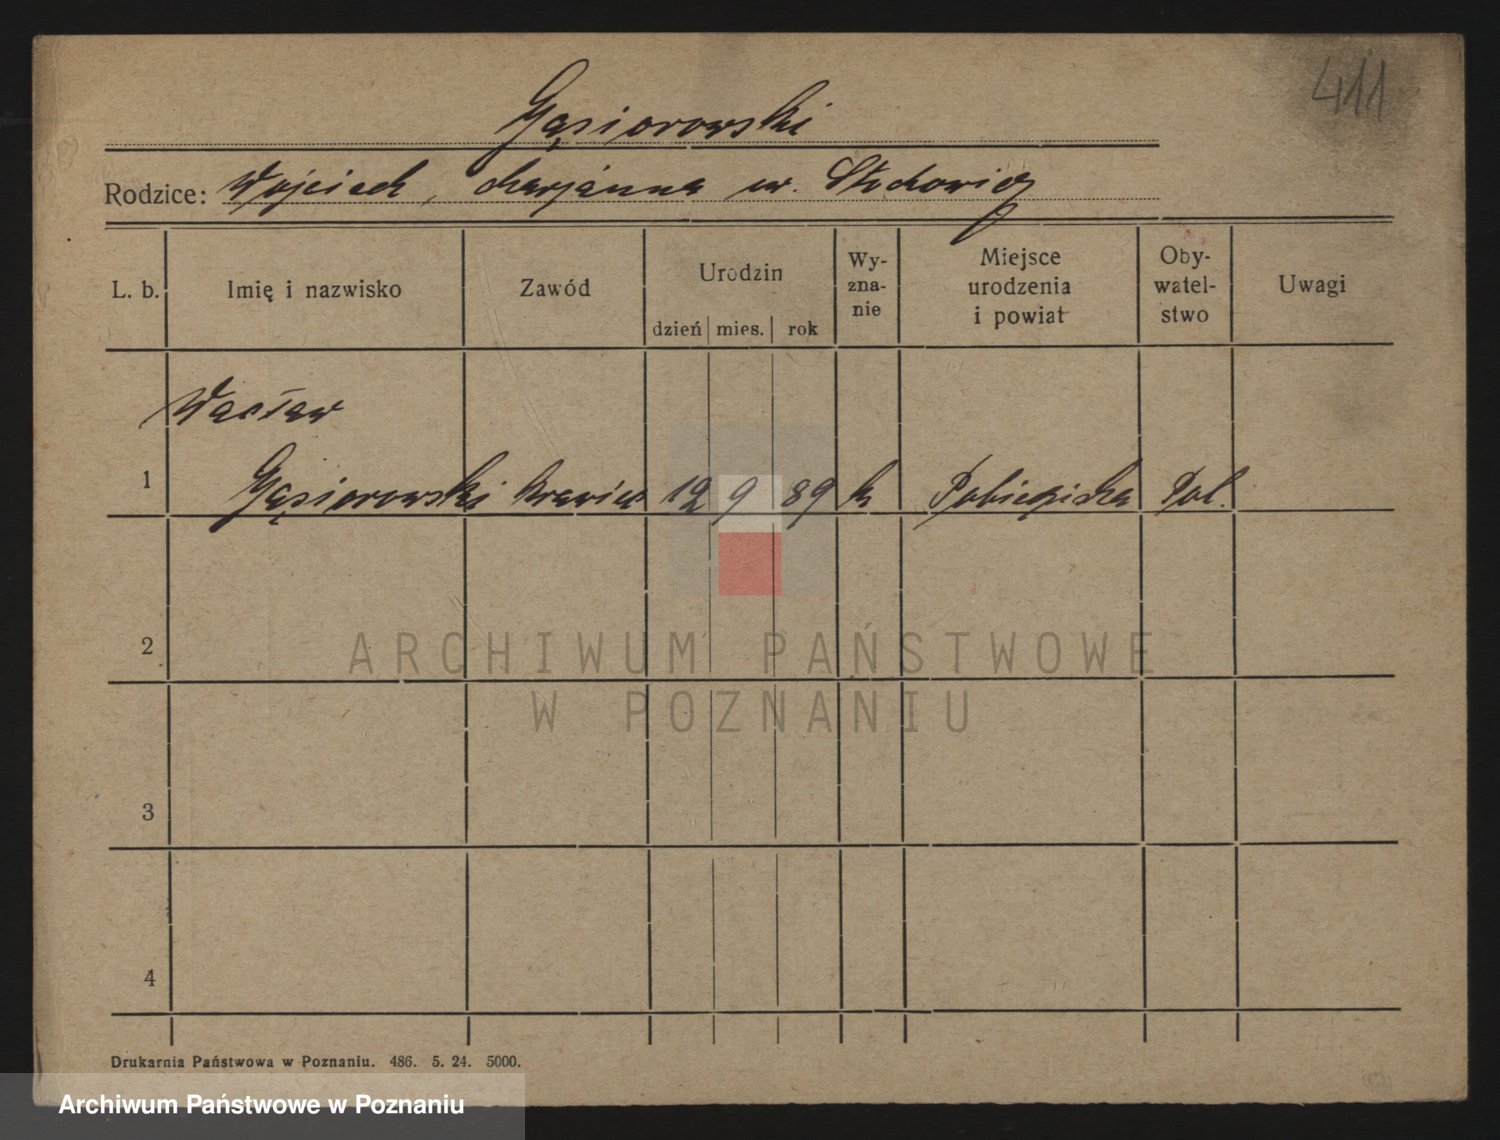 411
Gąsiorowski
Rodzice: Wojciech, Marjanna ur. Stachowicz
L. b. Imię i nazwisko Zawód Urodzin dzień mies. rok Wy-zna-nie Miejsce urodzenia i powiat Oby-watel-stwo Uwagi
Wacław
1 Gąsiorowski krawiec 12 9 89 k Pobiedziska Pol.
2
3
4
Drukarnia Państwowa w Poznaniu. 486. 5. 24. 5000.
ARCHIWUM PAŃSTWOWE
W POZNANIU
Archiwum Państwowe w Poznaniu